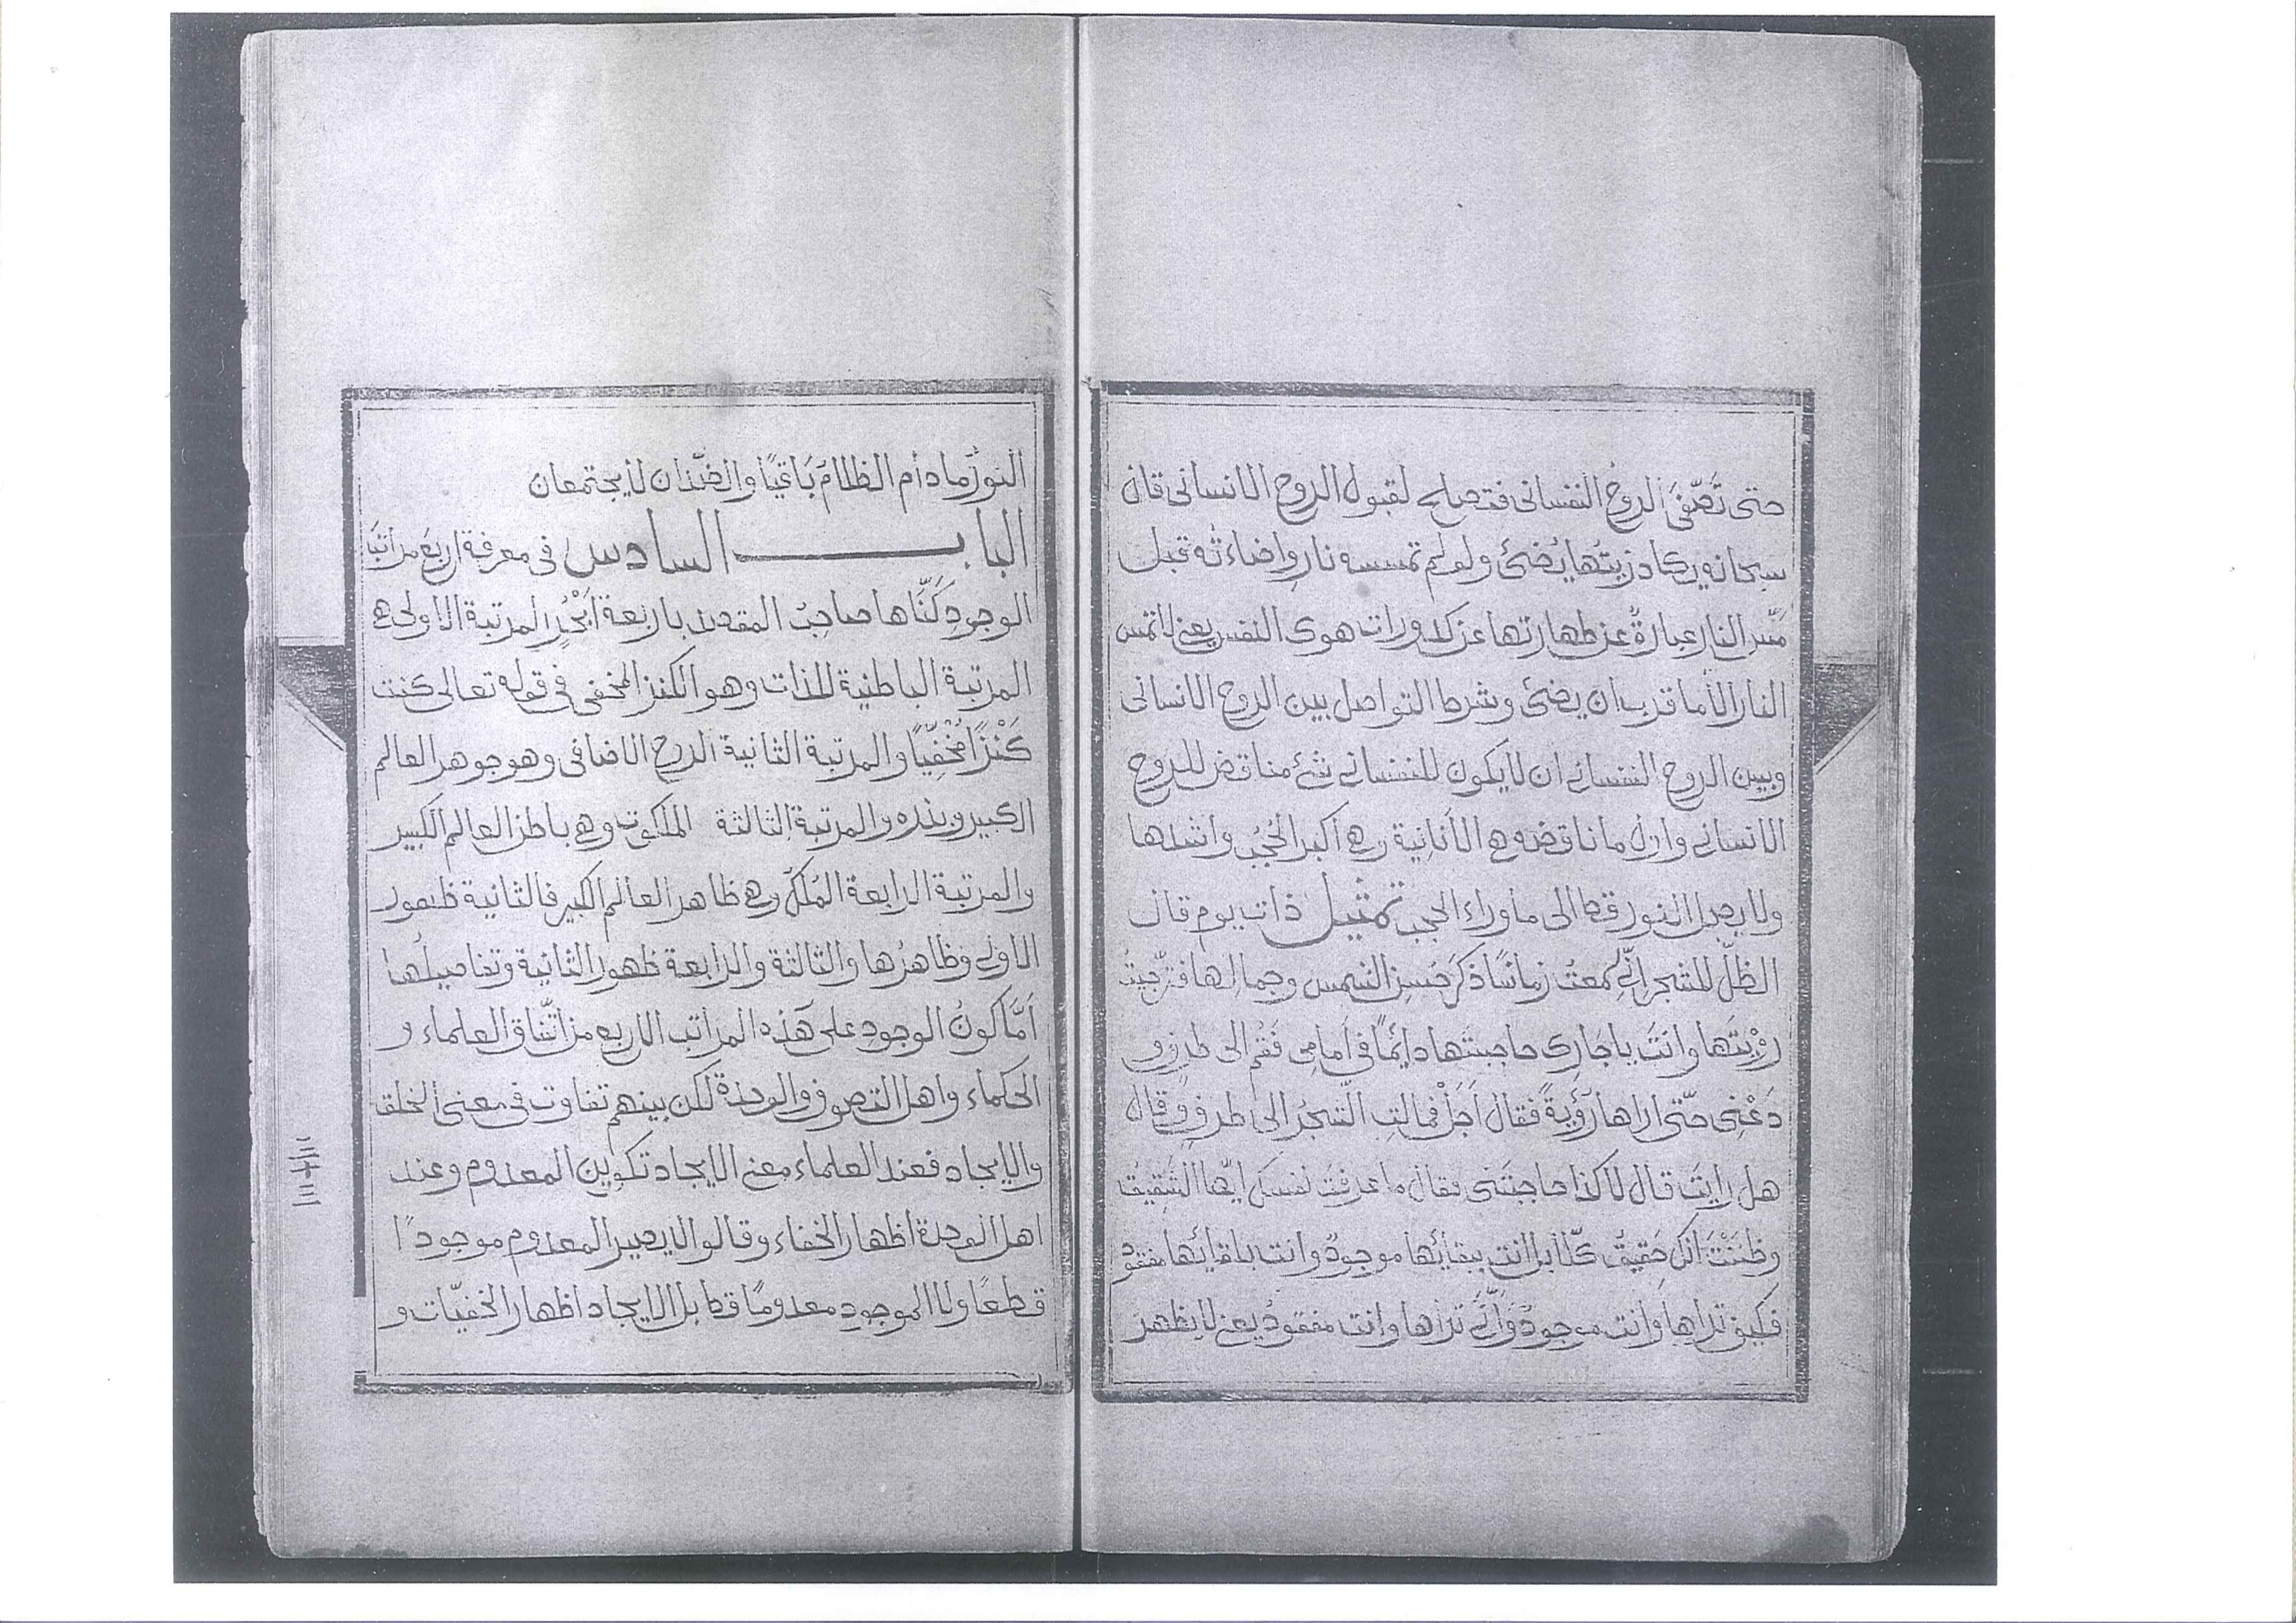 حتى تَصّفىَ الروحُ النفسانى فتصلح لقبول الروح الانسانى قال
سبحانه يكاد زيتُها يُضئُ ولو لم تمسسه نار واضاءته قبل
مَسّ النار عبارةٌ عن طهارتها عن كدورات هوى النفس يعنى لا تمس
النار الا ما قرب ان يضئ وشرط التواصل بين الروح الانسانى
وبين الروح النفسانى ان لا يكون للنفسانى شئ مناقض للروح
الانسانى واول ما ناقضه هى الأنانية وهى أكبر الحُجُب واشدها
ولا يصل النور قط الى ما وراء الحجب تمثيل ذات يوم قال
الظلّ للشجر انّى سمعتُ زمانًا ذكرَ حُسنِ الشمس وجمالها فترّجيتُ
رؤيتَها وانتَ يا جَارى حاجبتها دايمًا فى أمامى فقُم الى طرفٍ و
دَعْنِى حتّى اراها رؤيةً فقال اَجَلْ فمالتِ الشّجرُ الى طرفٍ وقال
هل رايتَ قال لا كذا حاجبتَنى فقال ما عرفتَ نفسَك ايّها الشقيقُ
وظننْتَ انّك حَقيقٌ كلّا بل انت ببقائها موجودٌ وانت بلقائها مفقود
فكيف تراها وانت موجودٌ واَنّىَ تراها وانت مفقودٌ يعنى لا يظهر
النورُ مادام الظلامَ بَاقيًا والضّدّان لا يجتمعان
الباب السادس فى معرفة اربع مراتب
الوجود كَنَّاها صاحبُ المقصد باربعة اَبْحُرٍ المرتبة الاولى هى
المرتبة الباطنية للذات وهو الكنز المخفى فى قوله تعالى كنت
كَنْزًا مُخْفِيّا والمرتبة الثانية الروح الاضافى وهو جوهر العالم
الكبير وبذره والمرتبة الثالثة الملكوت وهى باطن العالم الكبير
والمرتبة الرابعة المُلكُ وهى ظاهر العالم الكبير فالثانية ظهور
الاولى وظاهرُها والثالثة والرابعة ظهور الثانية وتفاصيلُها
اَمَّا كونُ الوجود على هَذه المراتب الاربع من اتّفاق العلماء و
الحكماء واهل التصوف والوحدة لكن بينهم تفاوت فى معنى الخلق
والايجاد فعند العلماء معنى الايجاد تكوين المعدوم وعند
اهل الوحدة اظهار الخفاء وقالوا لا يصير المعدوم موجودًا
قطعًا ولا الموجود معدومًا قط بل الايجاد اظهار الخفيّات و